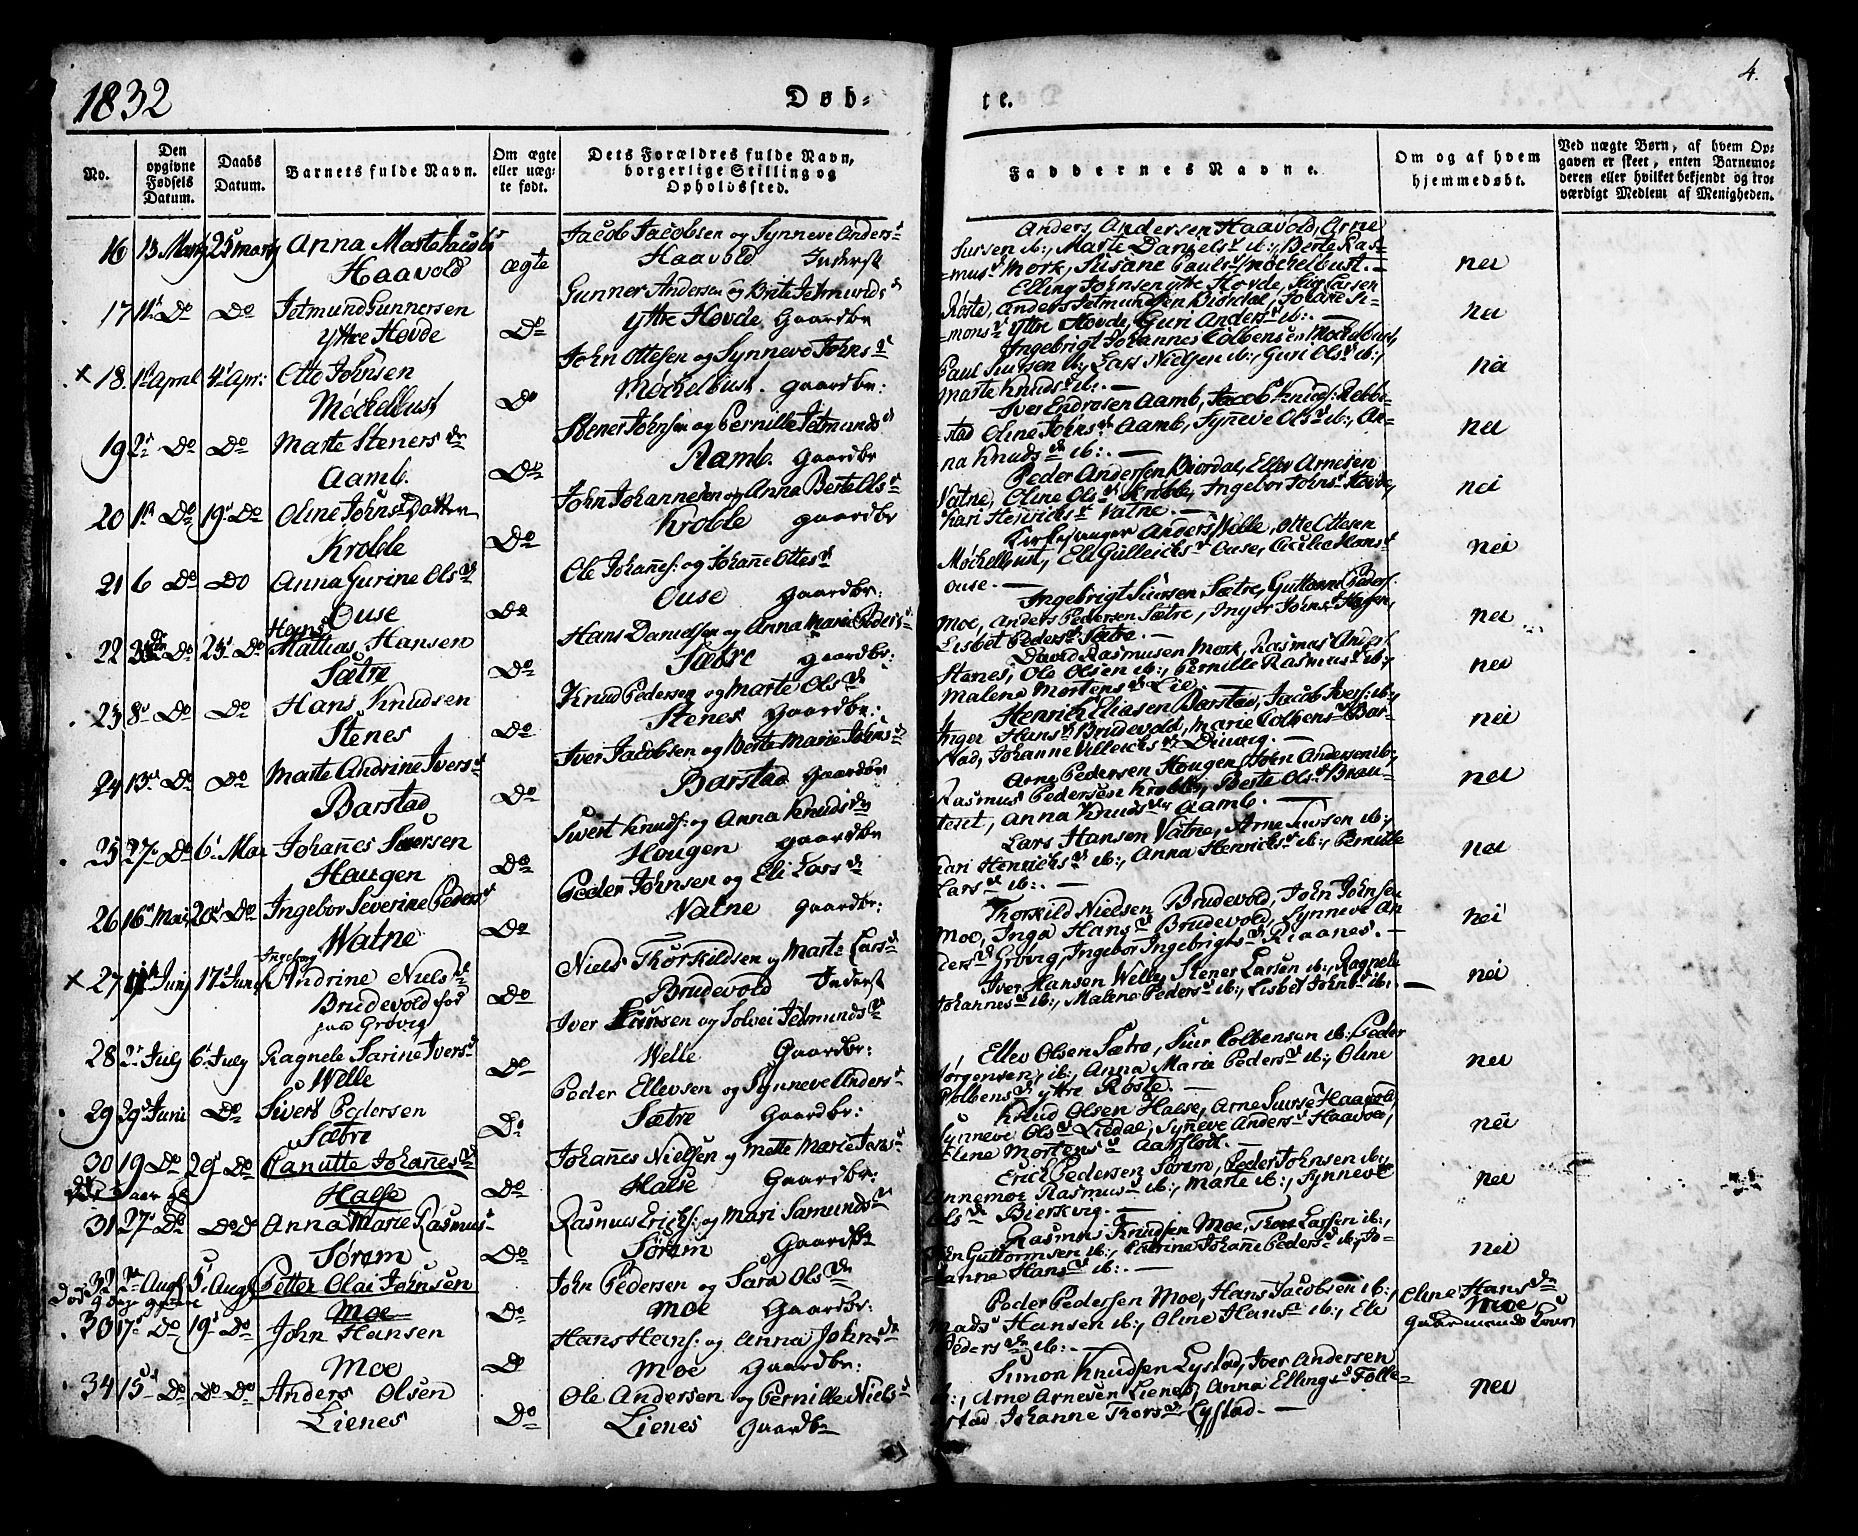 1832
Døb-
te.
4.
No.
Den opgivne Fødsels Datum.
Daabs Datum.
Barnets fulde Navn.
Om ægte eller uægte født.
Dets Forældres fulde Navn, borgerlige Stilling og Opholdssted.
Faddernes Navne.
Om og af hvem hjemmedøbt.
Ved uægte Børn, af hvem Opgaven er skeet, enten Barnemoderen eller hvilket bekjendt og troværdigt Medlem af Menigheden.
16 13 Martj 25 martj Anna Marte Jacobs
Haavold
ægte
Jacob Jacobsen og Synneve Anders
Haavold Inderst
Anders Andersen Haavold, Arne
Sursen ib:, Marte Daniels ib:, Berte Ras-
mus Mork, Susane Pauls Møchelbust.
nei
17 11 Do Do Jetmund Gunnersen
Yttre Hovde
Do
Gunner Andersen og Brite Jetmunds
Yttre Hovde Gaardbr
Elling Johnsen yttre Hovde, Siur Larsen
Røste, Anders Jetmundsen Biørdal, Johane Si-
mons yttre Hovde, Guri Anders ib:
nei
x 18 1 April 4 Apr: Otto Johnsen
Møchelbust
Do
John Ottesen og Synneve Johns
Møchelbust. gaardbr:
Ingebrigt Johannes Colbensen Mochelbust,
Paul Siursen ib:, Lars Nielsen ib:, Guri Ols ib:,
Marte Knuds ib:
nei
19 2 Do Do Marte Steners dr
Aamb.
Do
Stener Johnsen og Pernille Jetmunds
Aamb. Gaardbr
Iver Endresen Aamb, Jacob Knuds: Rebbe-
stad Oline Johns Aamb, Synneve Ols ib:, An-
na Knuds ib:
nei
20 1 Do 19 Do Oline Johns Datter
Kroble
Do
John Johannesen og Anna Berte Ols
Kroble gaardbr
Peder Andersen Biordal, Ellev Arnesen
Vatne, Oline Ols Kroble, Ingebor Johns Hovde,
Kari Henrichs Vatne.
nei
21 6 Do Do Anna Gurine Ols
Ouse
Do
Ole Johañes: og Johañe Ottes
Ouse Gaardbr:
Kirkesanger Anders Velle, Otte Ottesen
Møchelbust, Eli Gulleichs Ouse, Cecilia Hans
Ouse.
nei
22 Do 23 Do Hans Mathias Hansen
Sætre
Do
Hans Danielsen og Anna Marie Peders
Sætre gaardbr:
Ingebrigt Siursen Sætre, Guttorm Peders:
Moe, Anders Pedersen Sætre, Inger Johns Hogen,
Lisbet Peders Sætre.
nei
23 8 Do Do Hans Knudsen
Stenes
Do
Knud Pedersen og Marte Ols
Stenes gaardbr:
David Rasmusen Mork, Rasmus Anders:
Stenes, Ole Olsen ib:, Pernille Rasmus ib:,
Malene Mortens Lie
nei
24 13 Do Do Marte Andrine Ivers
Barstad
Do
Iver Jacobsen og Berte Marie Johns
Barstad Gaardbr
Henrich Eliasen Barstad, Jacob Ivers: ib:,
Inger Hans Brudevold, Marie Colbens Bar-
stad, Johanne
nei
25 27 Do 6 Mai Johañes Siversen
Haugen
Do
Sivert Knuds: og Anna Knuds
Hougen gaardbr
Arne Pedersen Hougen, John Andersen ib:,
Rasmus Pedersen Kroble, Berte Ols Brau-
teset, Anna Knuds Aamb.
nei
26 16 Mai 20 Do Ingebor Severine Peders
Watne
Do
Peder Johnsen og Eli Lars
Vatne Gaardbr:
Lars Hansen Vatne, Arne Siursen ib:,
Kari Henrichs ib:, Anna Henrichs ib:, Pernille
Lars ib:
nei
x 27 Junj 17 Junj Andrine Niels
Brudevold fød
paa Grøvig
Do
Niels Thorkildsen og Marte Lars
Brudevold Inderst
Thorkild Nielsen Brudevold, John Johnsen
Moe, Inga Hans Brudevold, Synneve An-
ders Grøvig, Ingebor Ingebrigts Riaanes.
nei
28 2 July 6 July Ragnele Sarine Ivers
Welle
Do
Iver og Solvei Jetmunds
Welle Gaardbr:
Iver Hansen Welle, Stener Larsen ib:, Ragnele
Johannes ib:, Malene Peders ib:, Lisbet Johns ib:
nei
29 29 Juni Do Sivert Pedersen
Sætre
Do
Peder Ellevsen og Synneve Anders
Sætre Gaardbr:
Ellev Olsen Sætre, Siur Colbensen ib: Peder
Jørgensen, ib:, Anna Marie Peders ib:, Oline
Colbens yttre Røste.
nei
30 19 Do 29 Do Canutte Johañes
Halse
Do
Johañes Nielsen og Mette Marie Jens
Halse Gaardbr:
Knud Olsen Halse, Arne Siurse Haavold,
Synneve Ols Liedal, Synneve Anders Haavold,
Elene Mortens Aarflodt.
nei
31 27 Do Do Do Anna Marie Rasmus
Sørøm
Do
Rasmus Erichs: og Mari Samunds
Sørøm Gaardbr
Erich Pedersen Sørøm, Peder Johnsen ib:,
Annemoe Rasmus ib:, Marte ib:, Synneve
Ols Bierkvig.
nei
32 2 Augs 5 Augs Petter Olai Johnsen
Død 9 dage gammel
Moe
Do
John Pedersen og Sara Ols
Moe Gaardbr:
Rasmus Knudsen Moe, Thor Larsen ib:,
Guttormsen ib:, Catrine Johañe Peders ib:, Jo-
hanne Hans ib:
nei
33 17 Do 19 Do John Hansen
Moe
Do
Hans Heins: og Anna Johns
Moe Gaardbr:
Peder Pedersen Moe, Hans Jacobsen ib:,
Mads Hansen ib:, Oline Hans ib:, Eli
Peders ib:
Oline Hans
Moe
34 15 Do Do Do Anders Olsen
Lienes
Do
Ole Andersen og Pernille Niels
Lienes Gaardbr
Simon Knudsen Lystad, Iver Andersen
ib:, Arne Arnesen Lienes, Anna Ellings Folle-
stad Johanne Thors Lystad.
nei